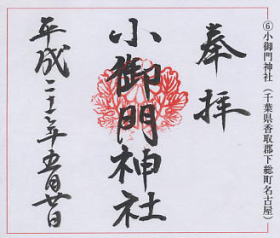 ⑥小御門神社(千葉県香取郡下総町名古屋)
奉拝
小御門神社
平成二十二年五月廿日